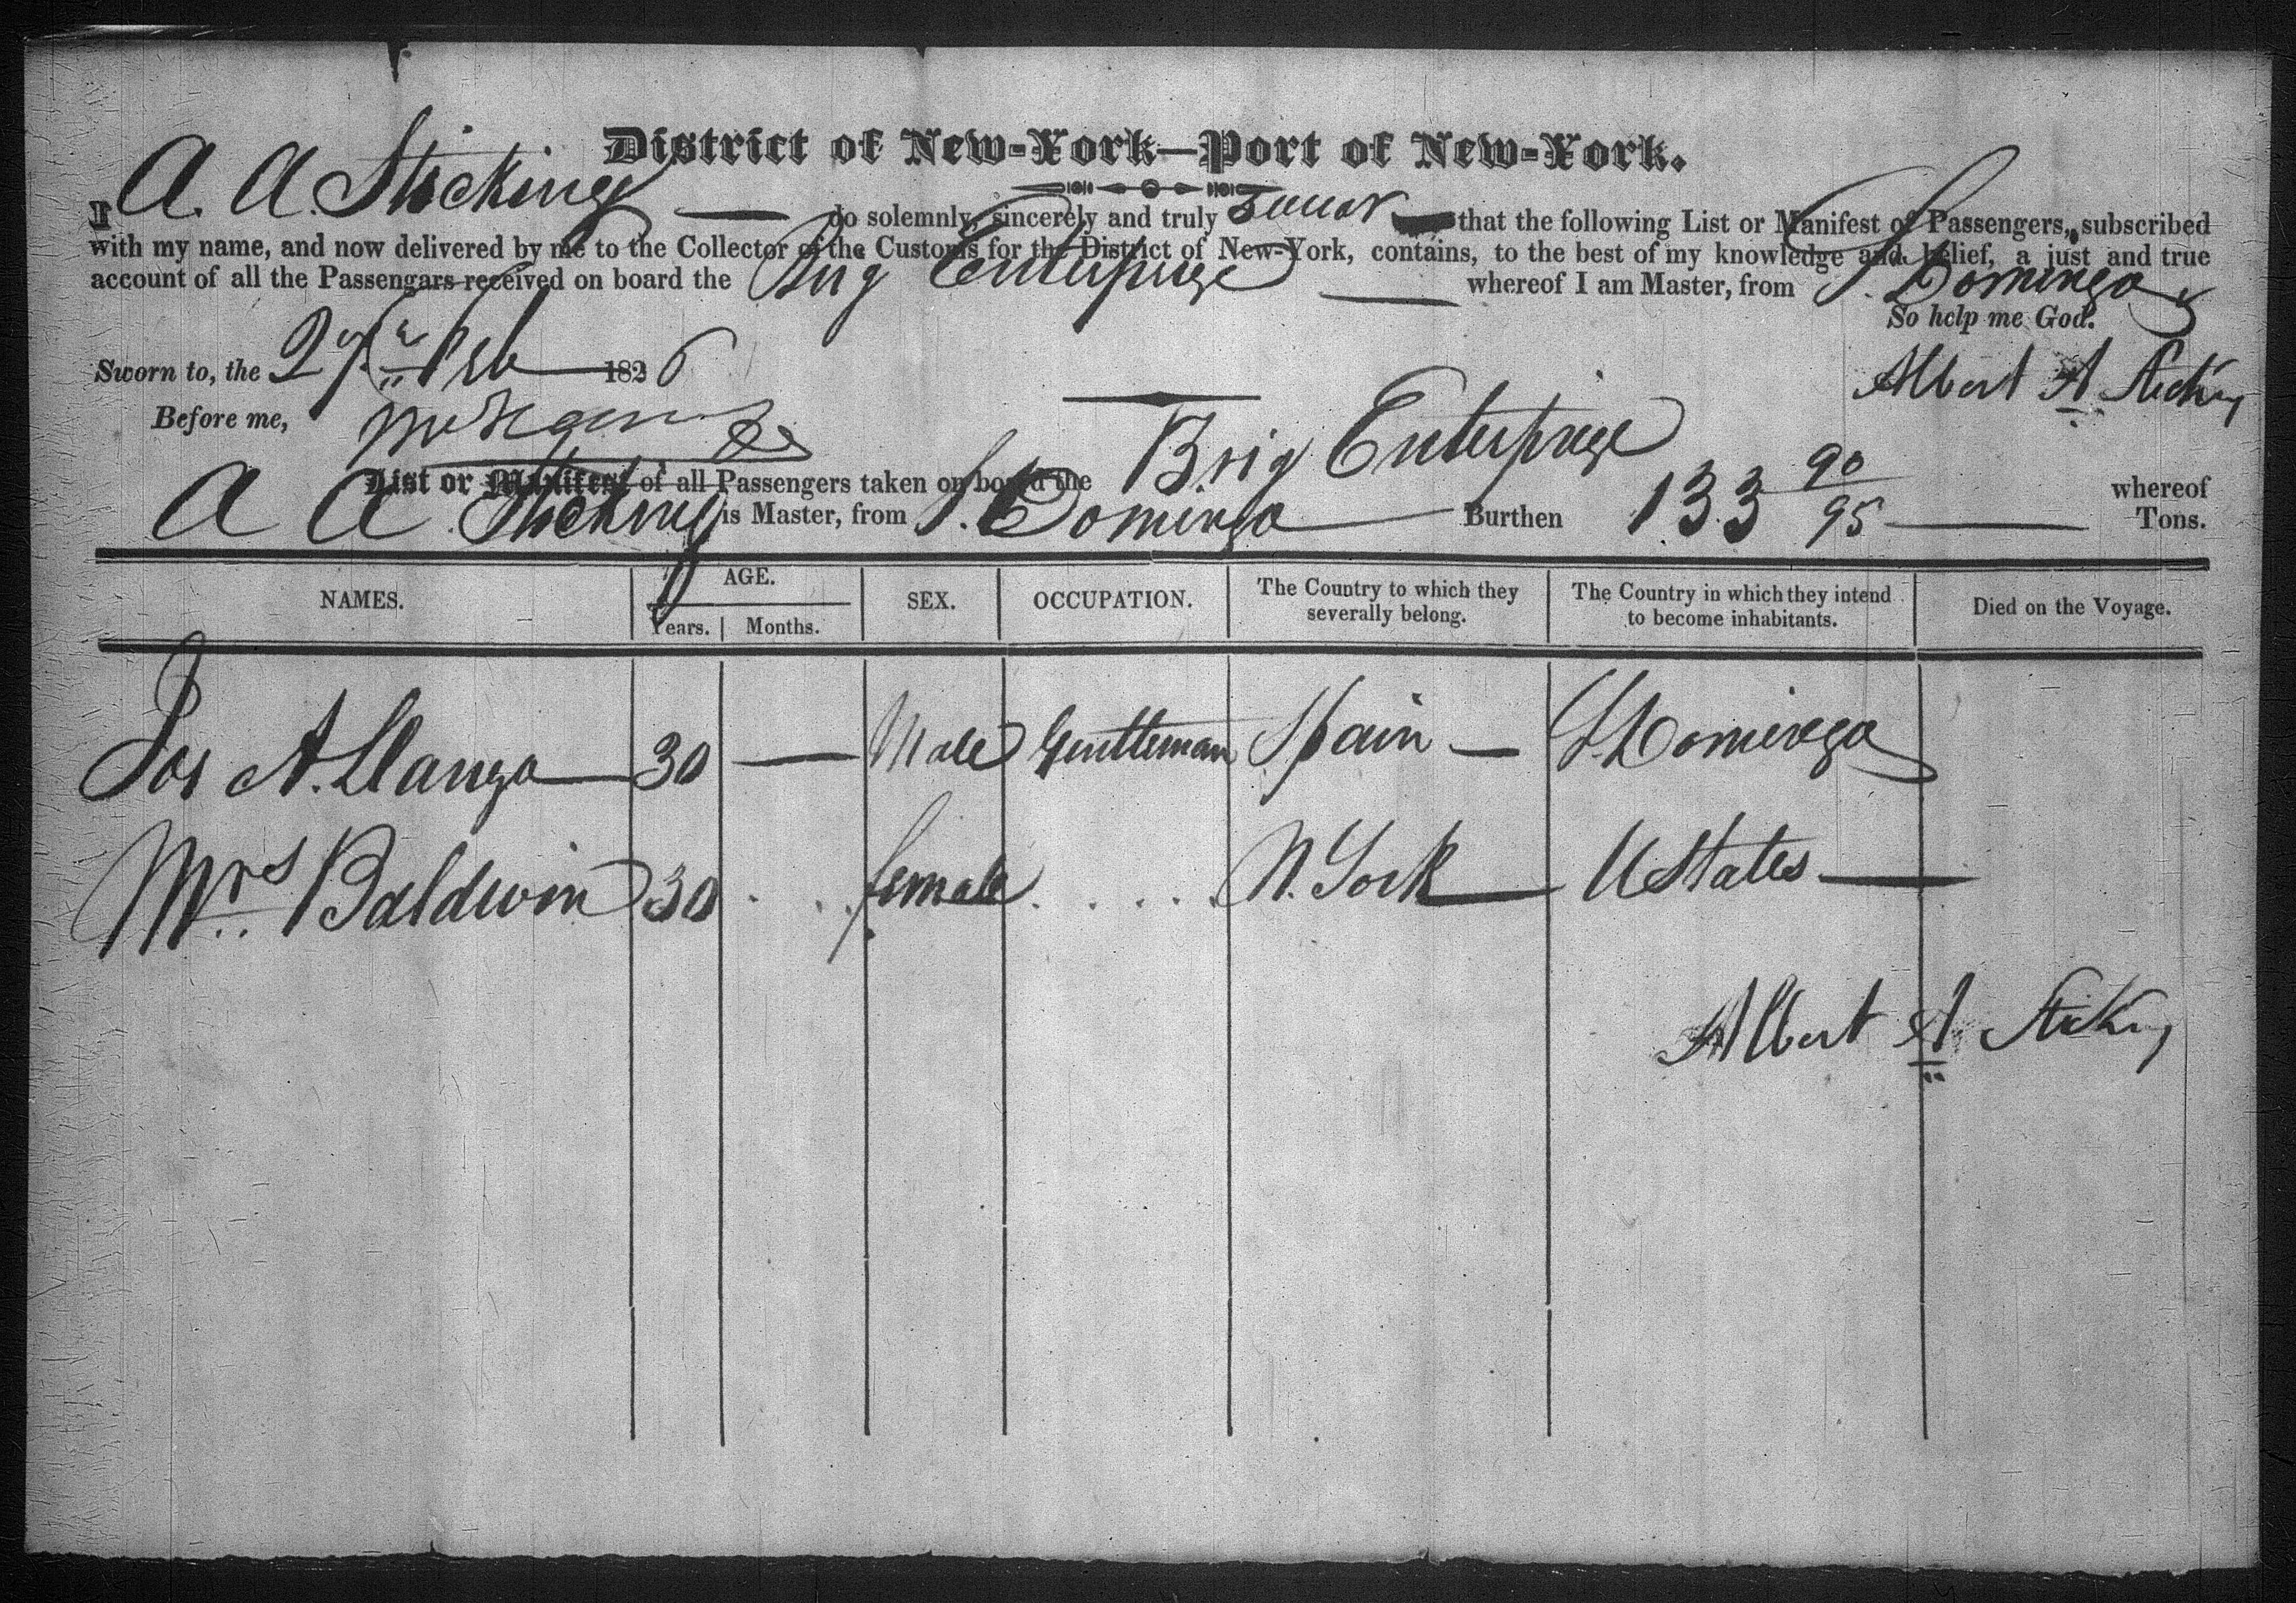 District of New-York—Port of New-York.
I A. A. Sticking — do solemnly, sincerely and truly swear that the following List or Manifest of Passengers, subscribed
with my name, and now delivered by me to the Collector of the Customs for the District of New-York, contains, to the best of my knowledge and belief, a just and true
account of all the Passengars received on board the Brig Enterprize — whereof I am Master, from S. Domingo
So help me God.
Sworn to, the 27th Feb 1826
Albert A Sticking
Before me,
List or Manifest of all Passengers taken on board the Brig Enterprize whereof
A A Sticking is Master, from S. Domingo — Burthen 133 90/95 — Tons.
NAMES. AGE. Years. Months. SEX. OCCUPATION. The Country to which they severally belong. The Country in which they intend to become inhabitants. Died on the Voyage.
Jos A. Llanga 30 — Male Gentleman Spain — S. Domingo
Mrs Baldwin 30 . . . female . . . . . N. York — U States —
Albert A Sticking